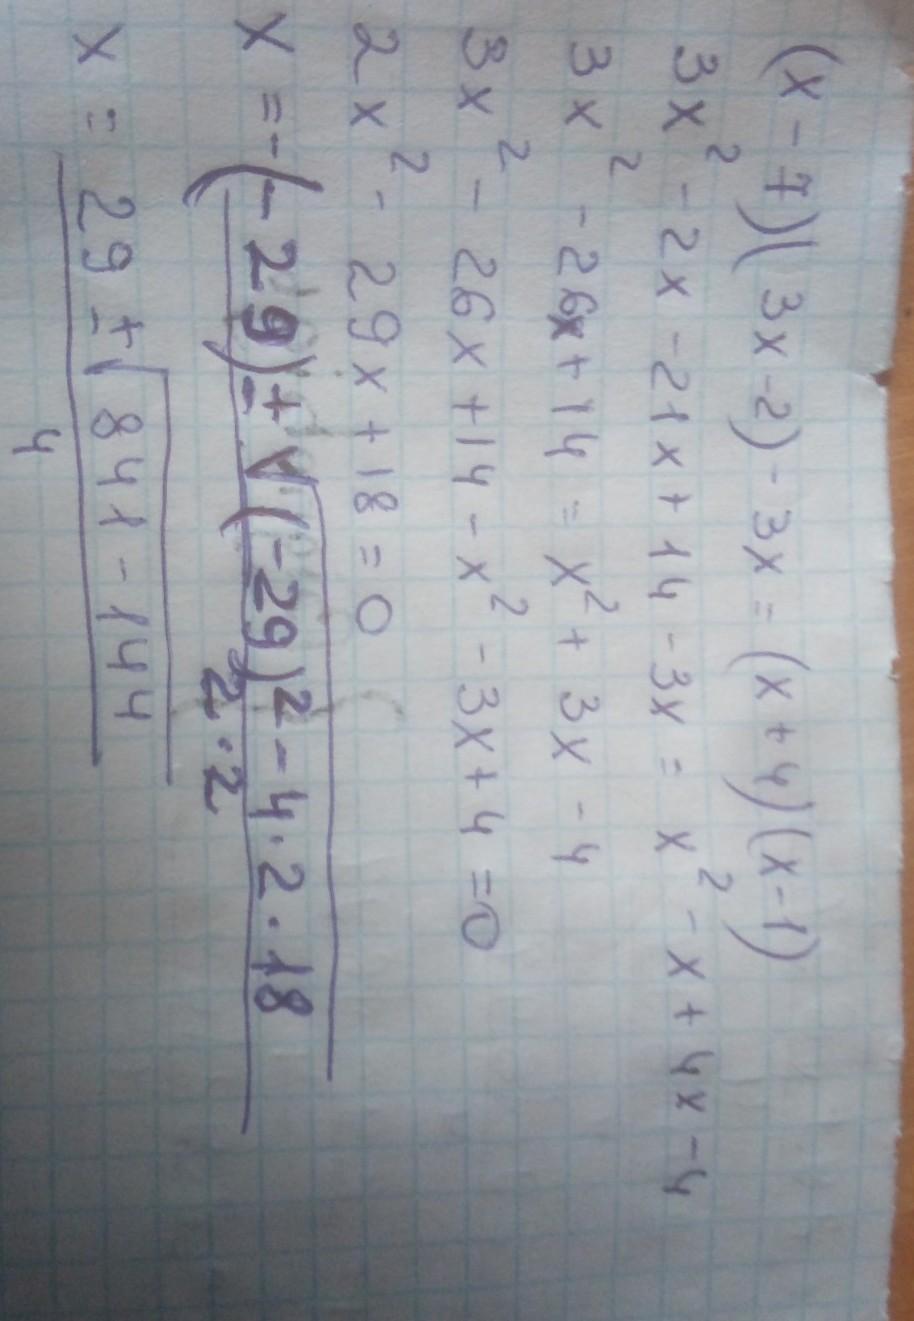 (x - 7)(3x - 2) - 3x = (x + 4)(x - 1)
3x² - 2x - 21x + 14 - 3x = x² - x + 4x - 4
3x² - 26x + 14 = x² + 3x - 4
3x² - 26x + 14 - x² - 3x + 4 = 0
2x² - 29x + 18 = 0
x = -(-29) ± √(-29)² - 4 · 2 · 18
2 · 2
x = 29 ± √841 - 144
4